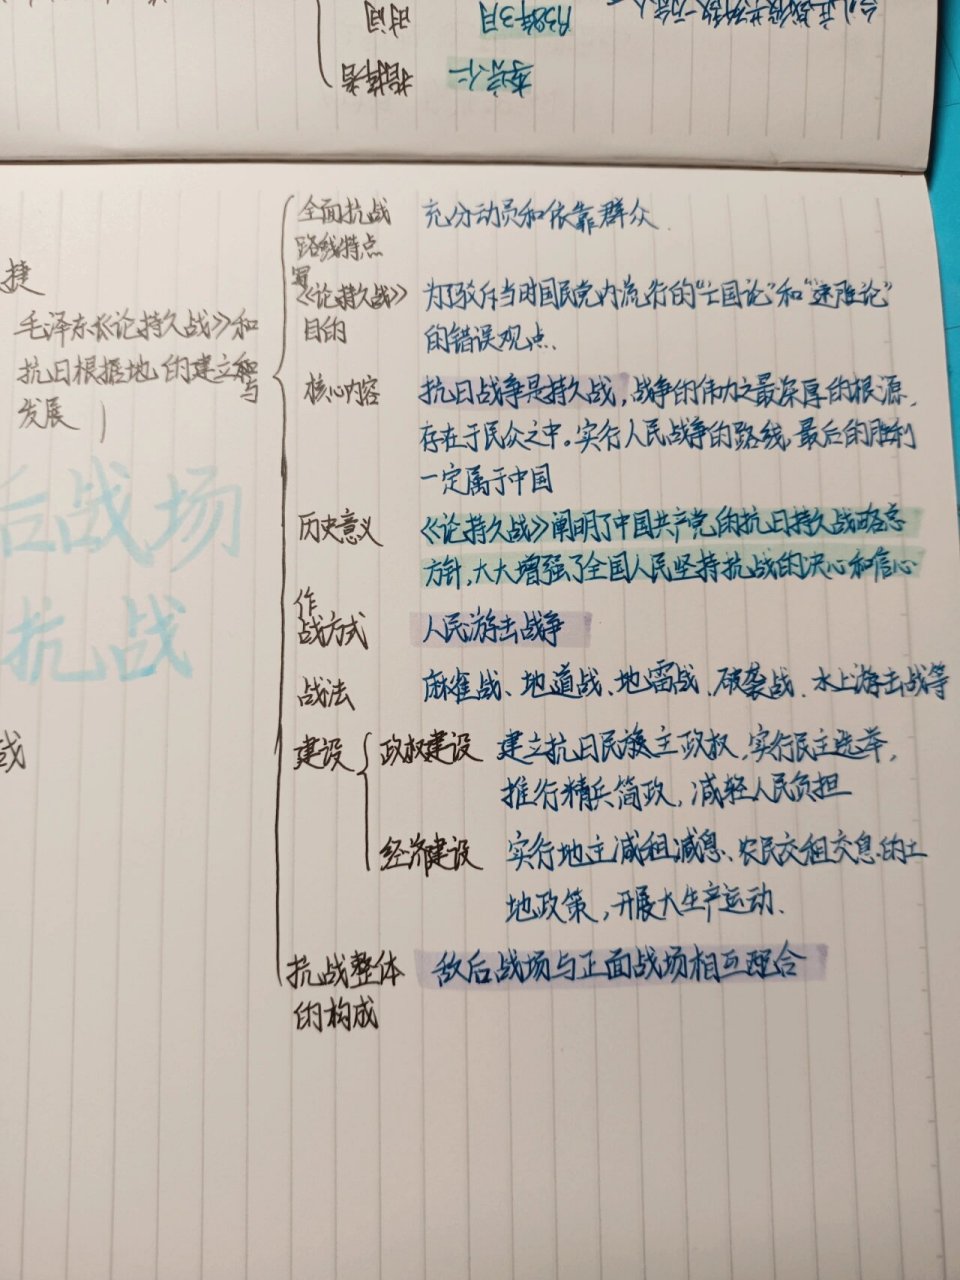 时间
1938年3月
台儿庄战役共歼敌一万余人
指挥者
李宗仁
捷
毛泽东《论持久战》和
抗日根据地的建立与
发展
后战场
抗战
战
全面抗战
路线特点
充分动员和依靠群众
写
《论持久战》
目的
为了驳斥当时国民党内流行的“亡国论”和“速胜论”
的错误观点.
核心内容
抗日战争是持久战,战争的伟力之最深厚的根源,
存在于民众之中。实行人民战争的路线,最后的胜利
一定属于中国
历史意义
《论持久战》阐明了中国共产党的抗日持久战略总
方针,大大增强了全国人民坚持抗战的决心和信心
作
战方式
人民游击战争
战法
麻雀战、地道战、地雷战、破袭战、水上游击战等
建设
政权建设
建立抗日民族主政权,实行民主选举,
推行精兵简政,减轻人民负担
经济建设
实行地主减租减息、农民交租交息的土
地政策,开展大生产运动.
抗战整体
的构成
敌后战场与正面战场相互配合